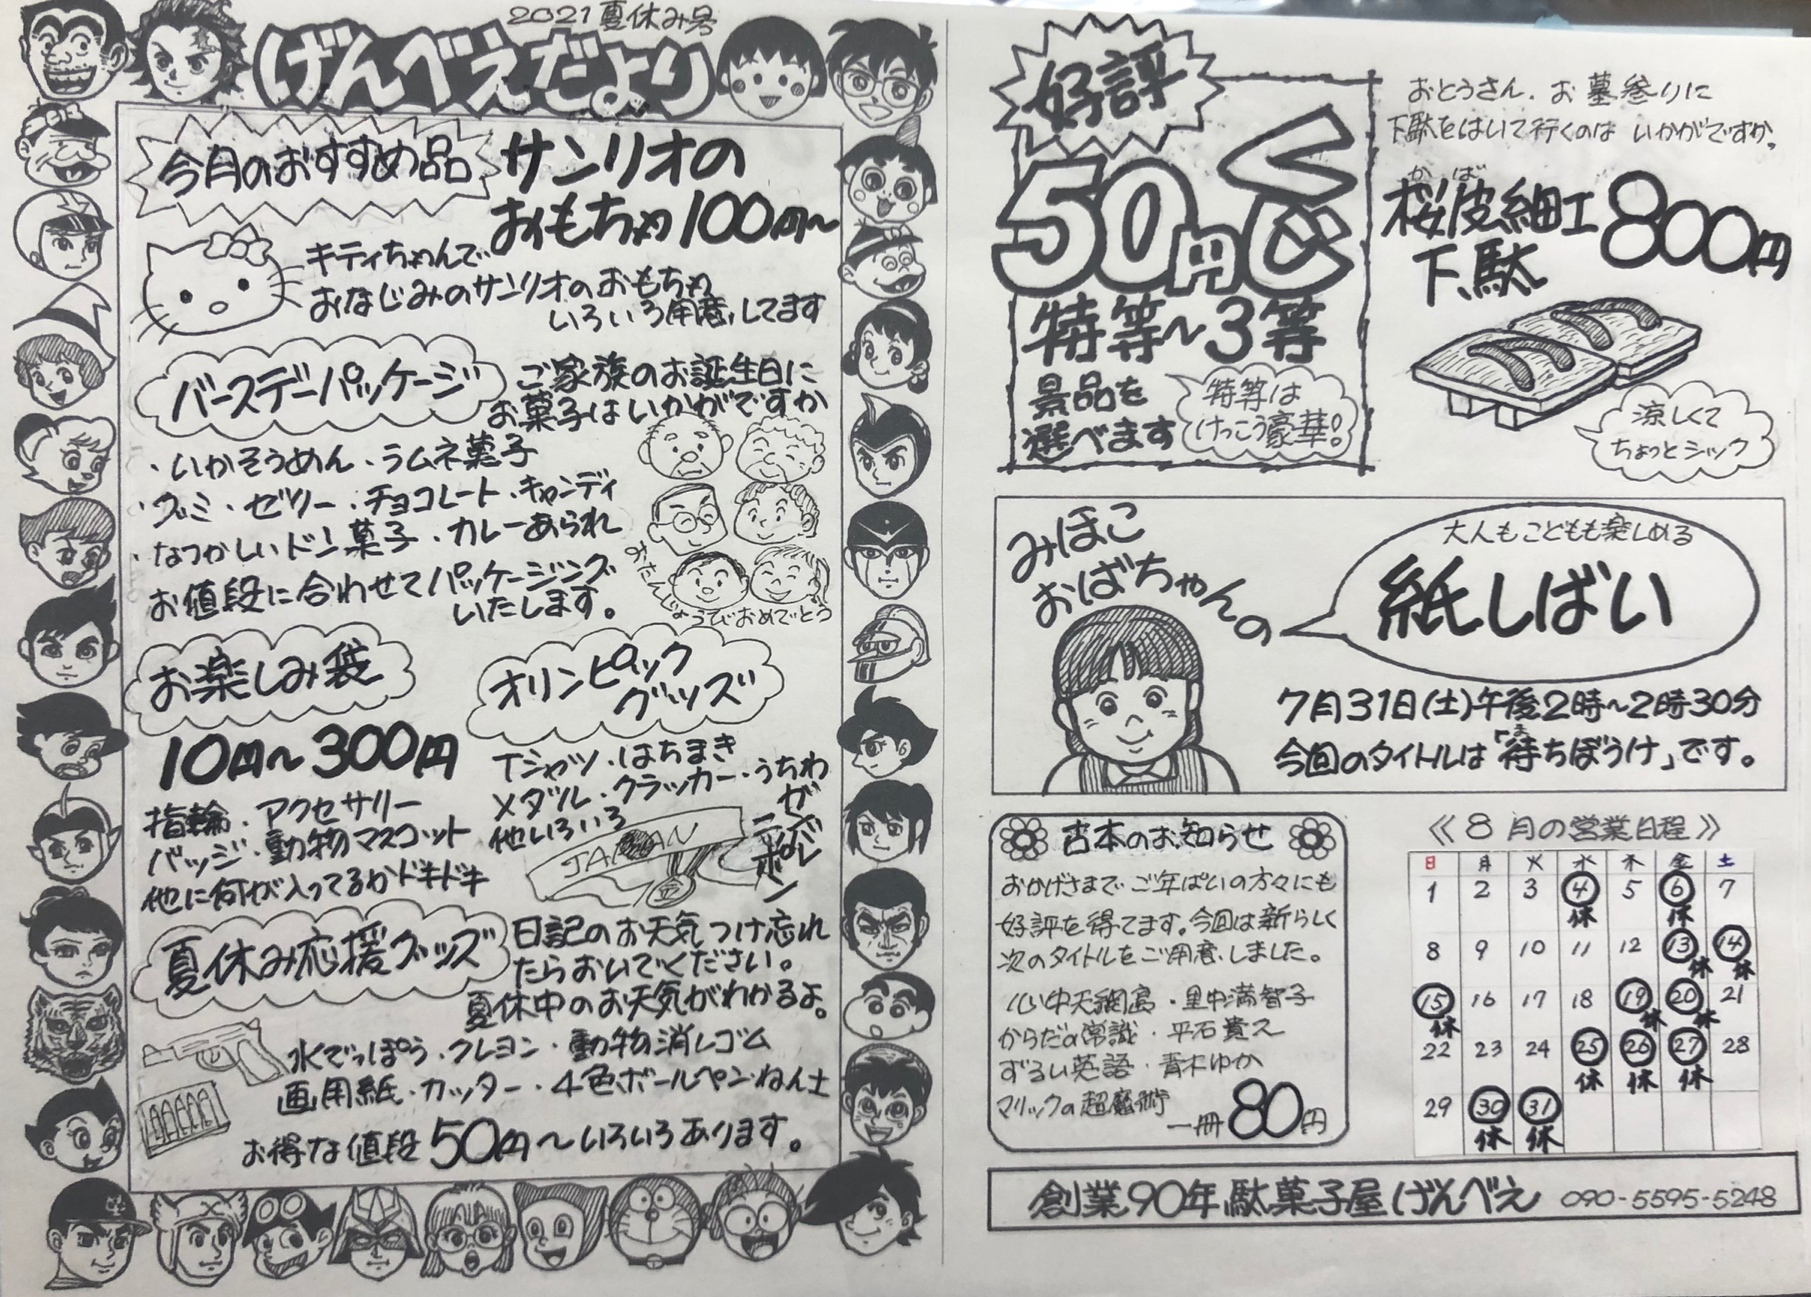 2021夏休み号
げんべえだより
今月のおすすめ品
サンリオの
おもちゃ100円〜
キティちゃんで
おなじみのサンリオのおもちゃ
いろいろ用意してます
バースデーパッケージ
ご家族のお誕生日に
お菓子はいかがですか
・いかそうめん・ラムネ菓子
・グミ・ゼリー・チョコレート・キャンディ
・なつかしいドン菓子・カレーあられ
お値段に合わせてパッケージング
いたします。
おたんじょうびおめでとう
お楽しみ袋
10円〜300円
指輪・アクセサリー
バッジ・動物マスコット
他に何が入ってるかドキドキ
オリンピック
グッズ
Tシャツ・はちまき
メダル・クラッカー・うちわ
他いろいろ
JAPAN
がんバレ
ニッポン
夏休み応援グッズ
日記のお天気つけ忘れ
たらおいでください。
夏休中のお天気がわかるよ。
水でっぽう・クレヨン・動物消しゴム
画用紙・カッター・4色ボールペン・ねん土
お得な値段50円〜いろいろあります。
好評
50円くじ
特等〜3等
景品を
選べます
特等は
けっこう豪華!
おとうさん、お墓参りに
下駄をはいて行くのは いかがですか。
かば
桜皮細工
下駄
800円
涼しくて
ちょっとシック
みほこ
おばちゃんの
大人もこどもも楽しめる
紙しばい
7月31日(土)午後2時〜2時30分
ま
今回のタイトルは「待ちぼうけ」です。
古本のお知らせ
おかげさまで ご年ぱいの方々にも
好評を得てます。今回は新らしく
次のタイトルをご用意しました。
心中天網島・里中満智子
からだの常識・平石貴久
ずるい英語・青木ゆか
マリックの超魔術
一冊80円
≪8月の営業日程≫
日 月 火 水 木 金 土
1 2 3 4 5 6 7
休 休
8 9 10 11 12 13 14
休 休
15 16 17 18 19 20 21
休 休 休
22 23 24 25 26 27 28
休 休 休
29 30 31
休 休
創業90年駄菓子屋げんべえ 090-5595-5248